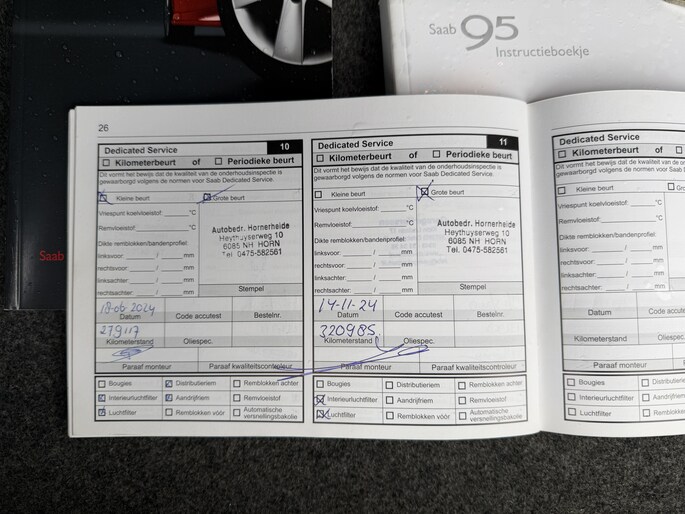 Saab 95
Instructieboekje
Saab
26
Dedicated Service 10
Kilometerbeurt of Periodieke beurt
Dit vormt het bewijs dat de kwaliteit van de onderhoudsinspectie is
gewaarborgd volgens de normen voor Saab Dedicated Service.
Kleine beurt Grote beurt
Vriespunt koelvloeistof: °C
Remvloeistof: °C
Dikte remblokken/bandenprofiel:
linksvoor: / mm
rechtsvoor: / mm
linksachter: / mm
rechtsachter: / mm
Autobedr. Hornerheide
Heythuyserweg 10
6085 NH HORN
Tel. 0475-582561
Stempel
18-06 2024
Datum Code accutest Bestelnr.
279117
Kilometerstand Oliespec.
Paraaf monteur Paraaf kwaliteitscontroleur
Bougies Distributieriem Remblokken achter
Interieurluchtfilter Aandrijfriem Remvloeistof
Luchtfilter Remblokken vóór Automatische
versnellingsbakolie
Dedicated Service 11
Kilometerbeurt of Periodieke beurt
Dit vormt het bewijs dat de kwaliteit van de onderhoudsinspectie is
gewaarborgd volgens de normen voor Saab Dedicated Service.
Kleine beurt Grote beurt
Vriespunt koelvloeistof: °C
Remvloeistof: °C
Dikte remblokken/bandenprofiel:
linksvoor: / mm
rechtsvoor: / mm
linksachter: / mm
rechtsachter: / mm
Autobedr. Hornerheide
Heythuyserweg 10
6085 NH HORN
Tel. 0475-582561
Stempel
14-11-24
Datum Code accutest Bestelnr.
320985
Kilometerstand Oliespec.
Paraaf monteur Paraaf kwaliteitscontroleur
Bougies Distributieriem Remblokken achter
Interieurluchtfilter Aandrijfriem Remvloeistof
Luchtfilter Remblokken vóór Automatische
versnellingsbakolie
Dedicated Service
Kilometerbeurt
Dit vormt het bewijs dat de kwa
gewaarborgd volgens de norme
Kleine beurt
Vriespunt koelvloeistof: °C
Remvloeistof: °C
Dikte remblokken/bandenprofiel:
linksvoor: / mm
rechtsvoor: / mm
linksachter: / mm
rechtsachter: / mm
Datum Code
Kilometerstand Olies
Paraaf monteur
Bougies Distri
Interieurluchtfilter Aandr
Luchtfilter Remb